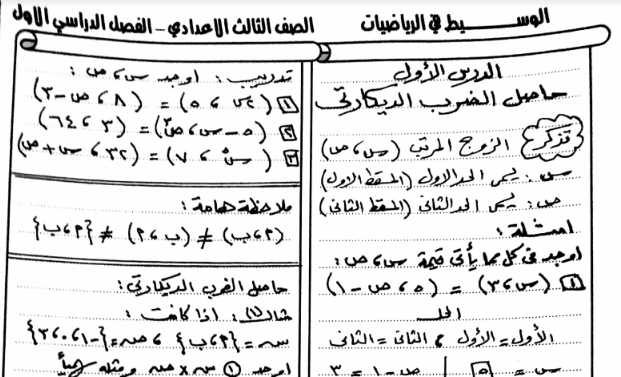 الوسيط في الرياضيات
الصف الثالث الاعدادي – الفصل الدراسي الأول
الدرس الأول
حاصل الضرب الديكارتي
تذكر
الزوج المرتب (س ، ص)
س : يسمى الحد الأول (المسقط الأول)
ص : يسمى الحد الثاني (المسقط الثاني)
أمثلة :
أوجد في كل مما يأتي قيمة س ، ص :
١ (س ، ٣) = (٥ ، ص – ١)
الحل
الأول = الأول ، الثاني = الثاني
س = ٥ | ص – ١ = ٣
تدريب : أوجد س ، ص :
١ ( ، ٥) = (٨ ، ص – ٣)
٢ (٥ – س ، ص) = (٣ ، ٦٤)
٣ (س ، ٧) = (٣٢ ، س + ص)
ملاحظة هامة :
(٢ ، ب) ≠ (ب ، ٢) ≠ {٢ ، ب}
حاصل الضرب الديكارتي :
مثال (١) : اذا كانت :
س = {٢ ، ب} ، ص = {–١ ، ٠ ، ٣}
أوجد ١ س × ص ومثله